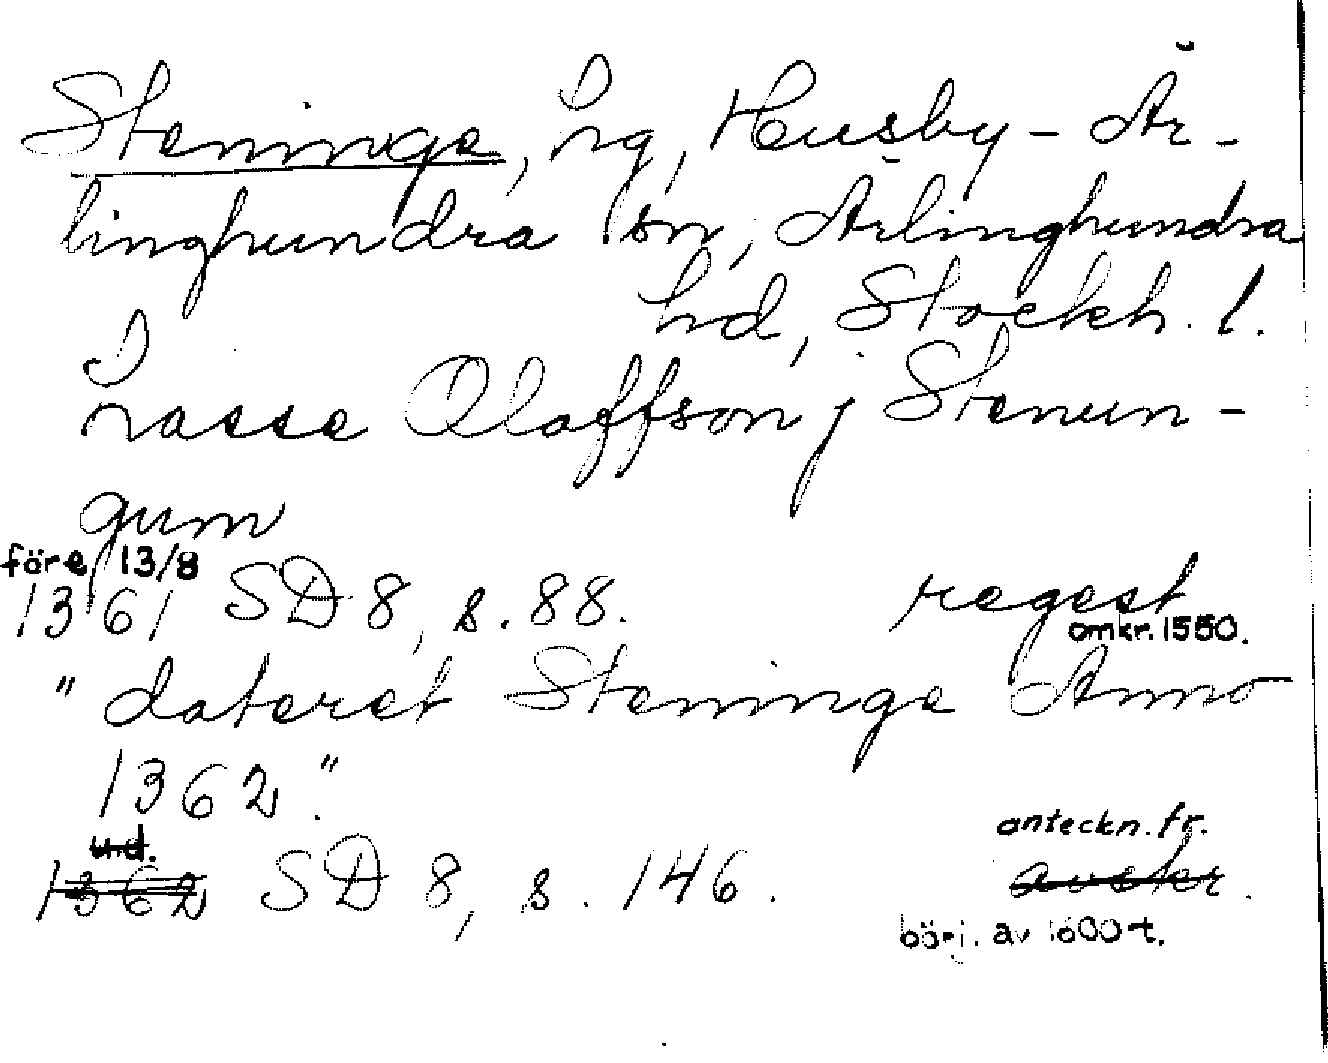 Steninge, hg, Husby-Är-
linghundra sn, Ärlinghundra
hd, Stockh. l.
Lasse Olaffson j Stenun-
gum
före 13/8
1361 SD 8, s. 88. regest
omkr. 1550.
" dateret Steninge Anno
1362."
u.d. anteckn. fr.
1362 SD 8, s. 146. avskr.
börj. av 1600-t.